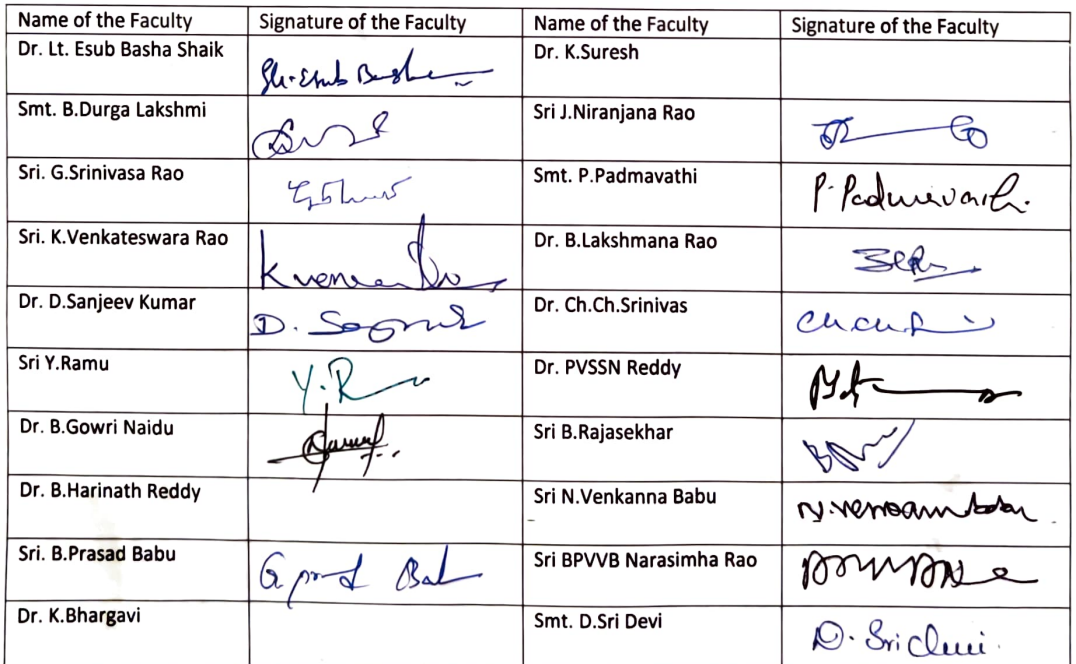 Name of the Faculty Signature of the Faculty Name of the Faculty Signature of the Faculty
Dr. Lt. Esub Basha Shaik Sk. Esub Basha Dr. K.Suresh
Smt. B.Durga Lakshmi Sri J.Niranjana Rao
Sri. G.Srinivasa Rao Smt. P.Padmavathi P. Padmavathi.
Sri. K.Venkateswara Rao Dr. B.Lakshmana Rao
Dr. D.Sanjeev Kumar D. Dr. Ch.Ch.Srinivas
Sri Y.Ramu Y.R Dr. PVSSN Reddy
Dr. B.Gowri Naidu Sri B.Rajasekhar
Dr. B.Harinath Reddy Sri N.Venkanna Babu
Sri. B.Prasad Babu Sri BPVVB Narasimha Rao
Dr. K.Bhargavi Smt. D.Sri Devi D. Sri Devi.